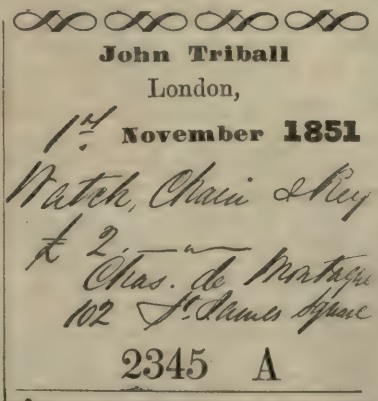 John Triball
London,
1st November 1851
Watch, Chain & Key
£ 2. — " —
Chas. de Montague
102 St. James Square
2345 A